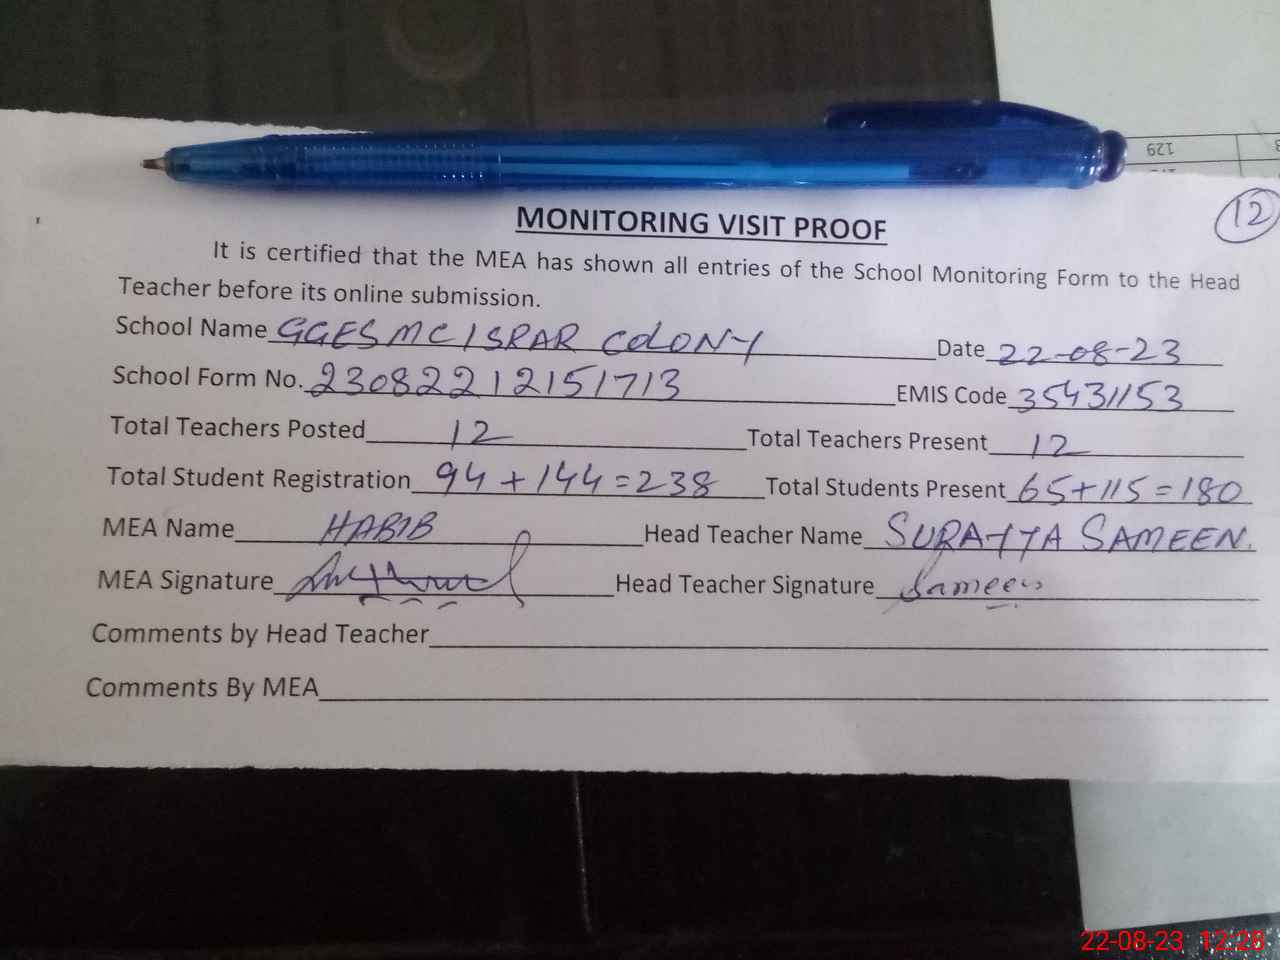 129
12
MONITORING VISIT PROOF
It is certified that the MEA has shown all entries of the School Monitoring Form to the Head
Teacher before its online submission.
School Name GGES MC ISPAR COLONY Date 22-08-23
School Form No. 23082212151713 EMIS Code 35431153
Total Teachers Posted 12 Total Teachers Present 12
Total Student Registration 94+144=238 Total Students Present 65+115=180
MEA Name HABIB Head Teacher Name SURAYYA SAMEEN.
MEA Signature Head Teacher Signature Sameen
Comments by Head Teacher
Comments By MEA
22-08-23 12:26